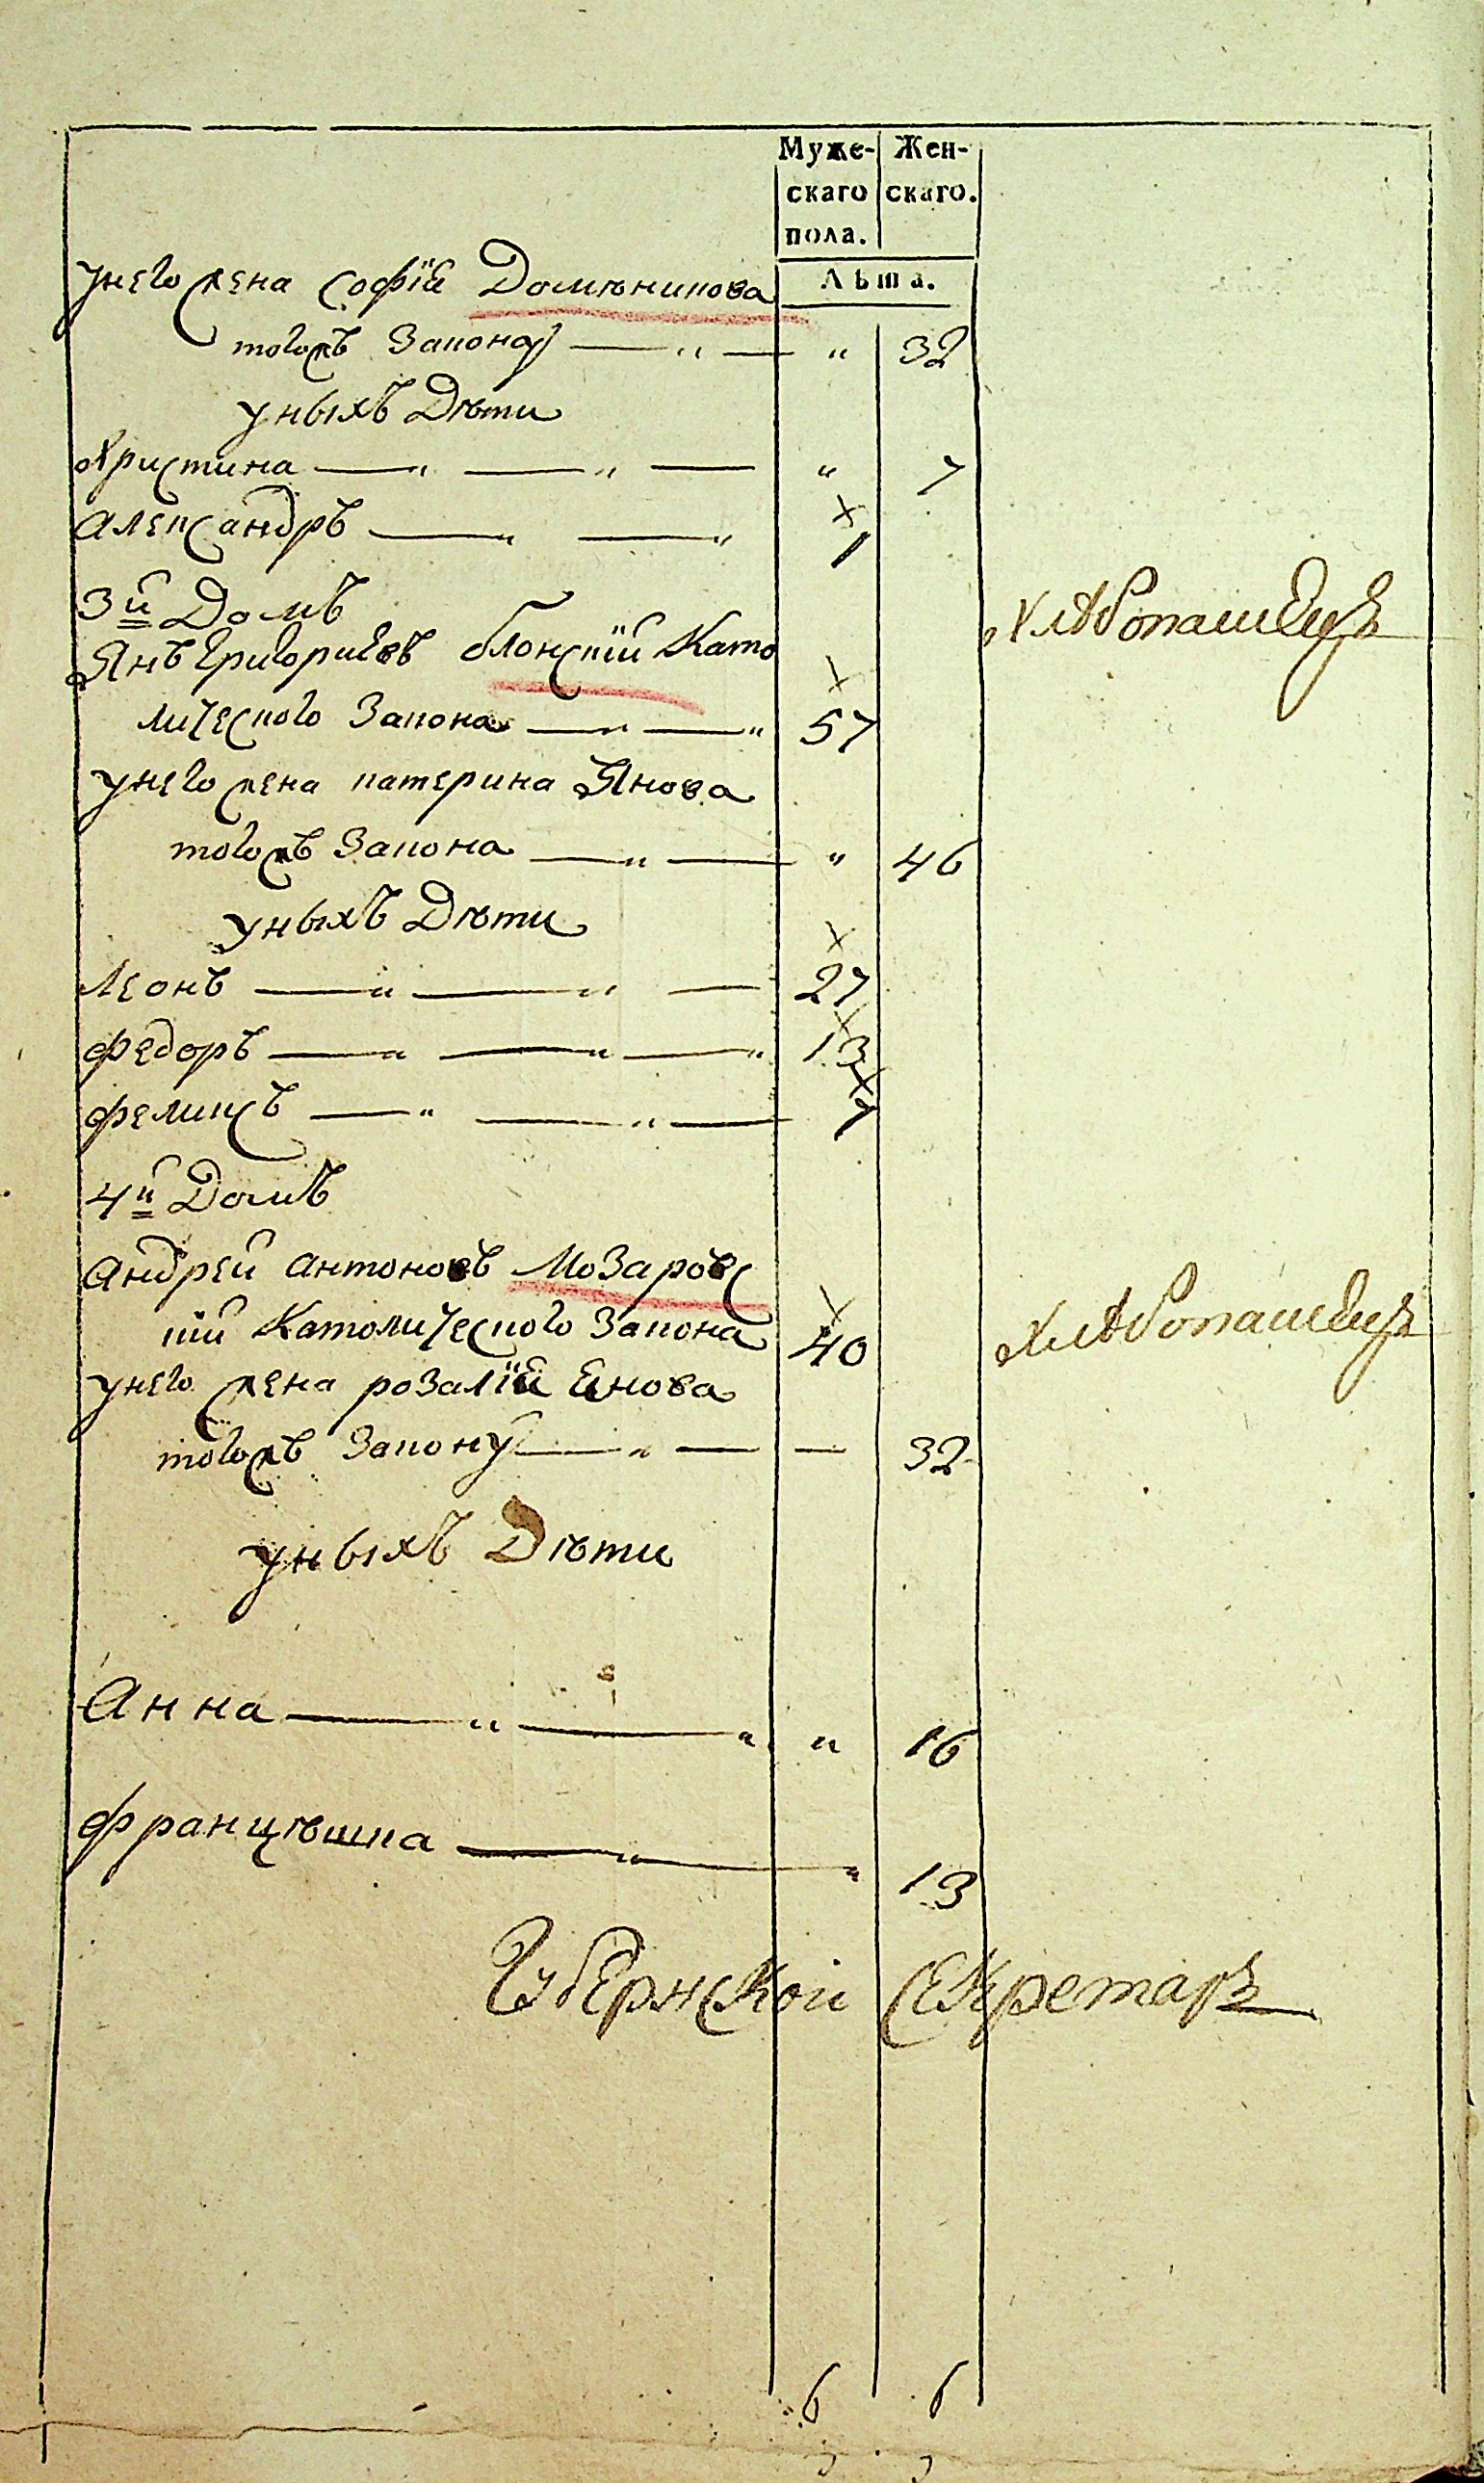 Муже-
скаго
пола.
Жен-
скаго.
Лѣта.
унего жена Софїи Доминикова
тогожъ Закону — „ — „ 32
уныхъ Дѣти
Христина — „ — „ — „ 7
Александръ — „ — „ 1
3й Домъ
Янъ Григориевъ Блонскїй Като
лического Закона — „ — „ 57
Хлѣбопашецъ
унего жена катерина Янова
тогожъ Закона — „ — „ 46
уныхъ Дѣти
Леонъ — „ — „ — 27
Федоръ — „ — „ — „ 13
Феликсъ — „ — „ — 7
4й Домъ
Андрей Антоновъ Мозаровс
кїй Католического Закона 40
Хлѣбопашецъ
унего жена розалїи Енова
тогожъ Закону — „ — — 32
уныхъ Дѣти
Анна — „ — „ „ 16
Францѣшка — „ — „ 13
Губернской Секретаръ
6 6